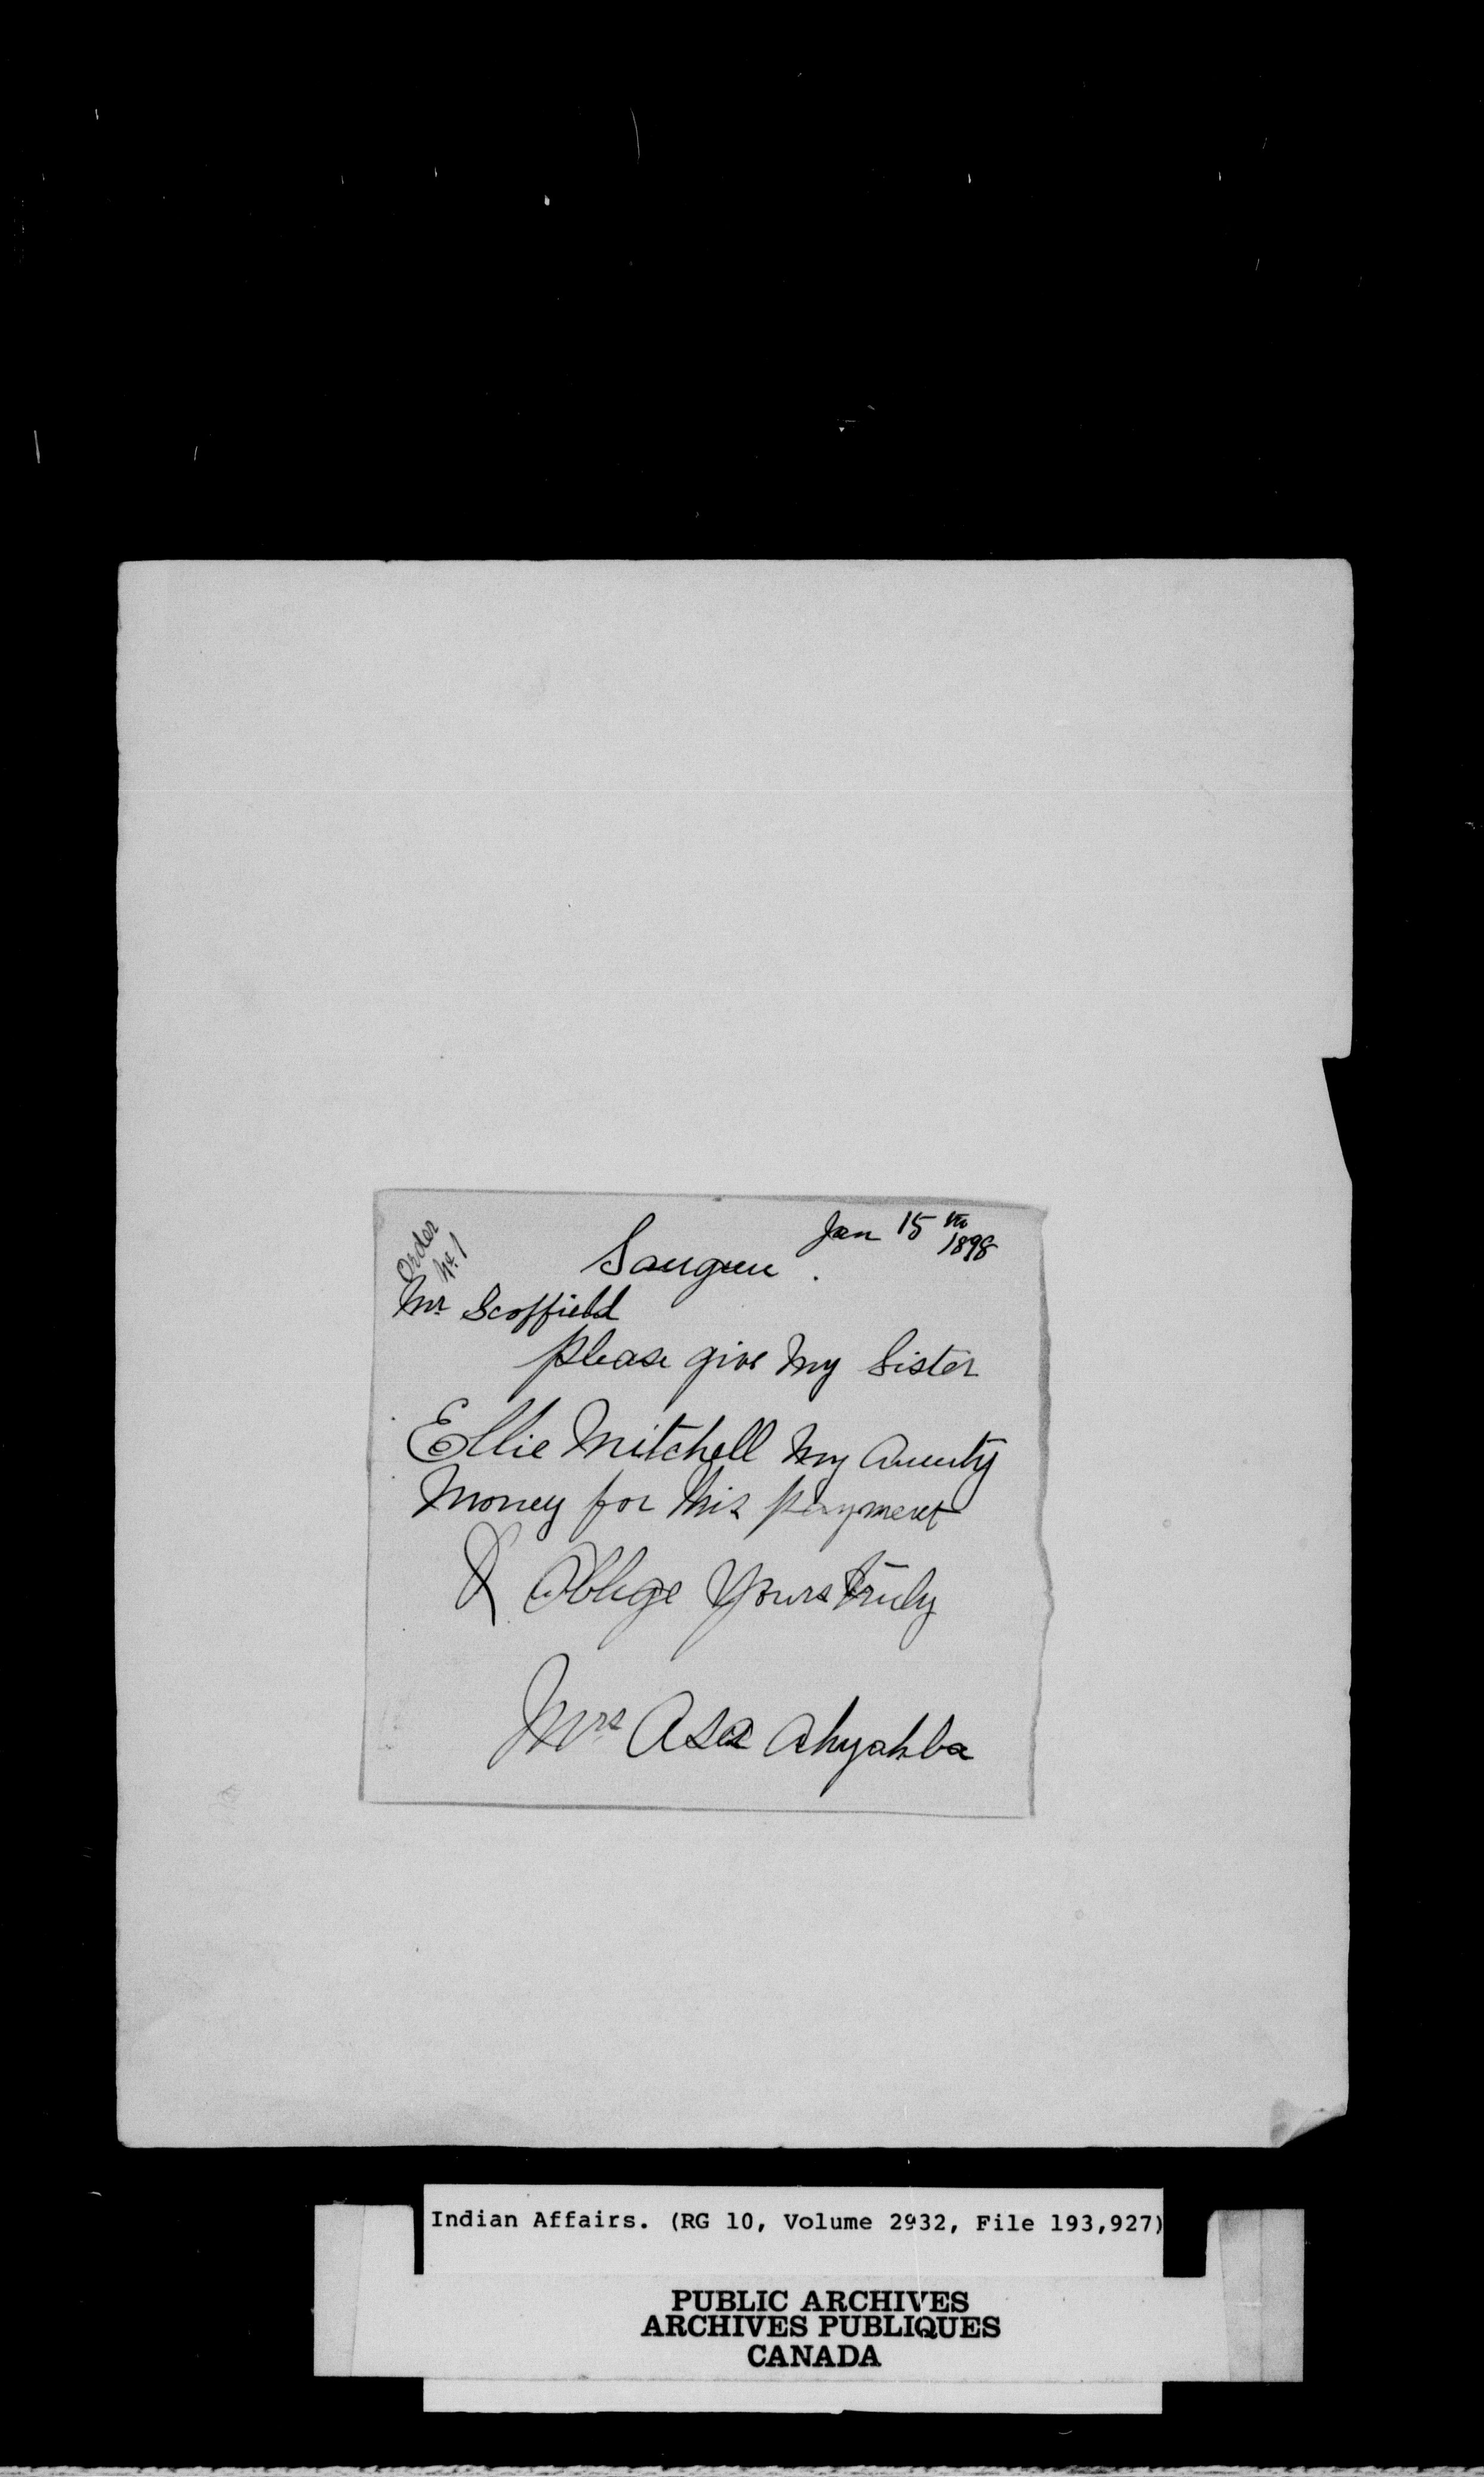 Order
No. 1
Jan 15th
1898
Saugeen.
Mr Scoffield
please give my Sister
Ellie Mitchell my Anuity
Money for this payment
& Oblige Yours truly
Mrs Asa Ahyahba
Indian Affairs. (RG 10, Volume 2932, File 193,927)
PUBLIC ARCHIVES
ARCHIVES PUBLIQUES
CANADA